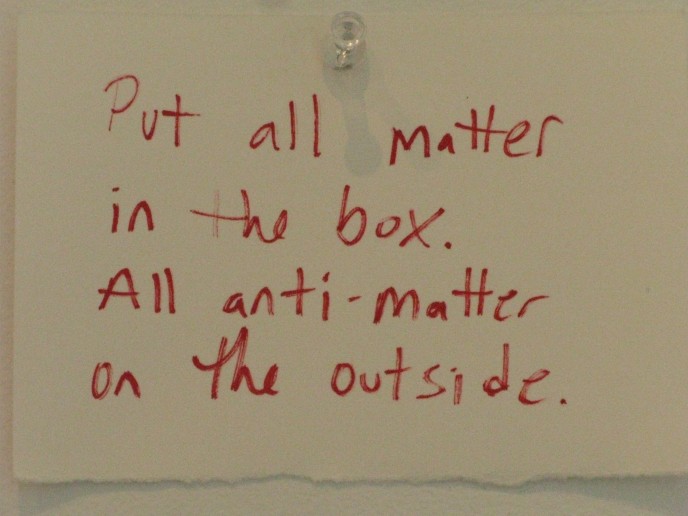 Put all matter
in the box.
All anti-matter
on the outside.